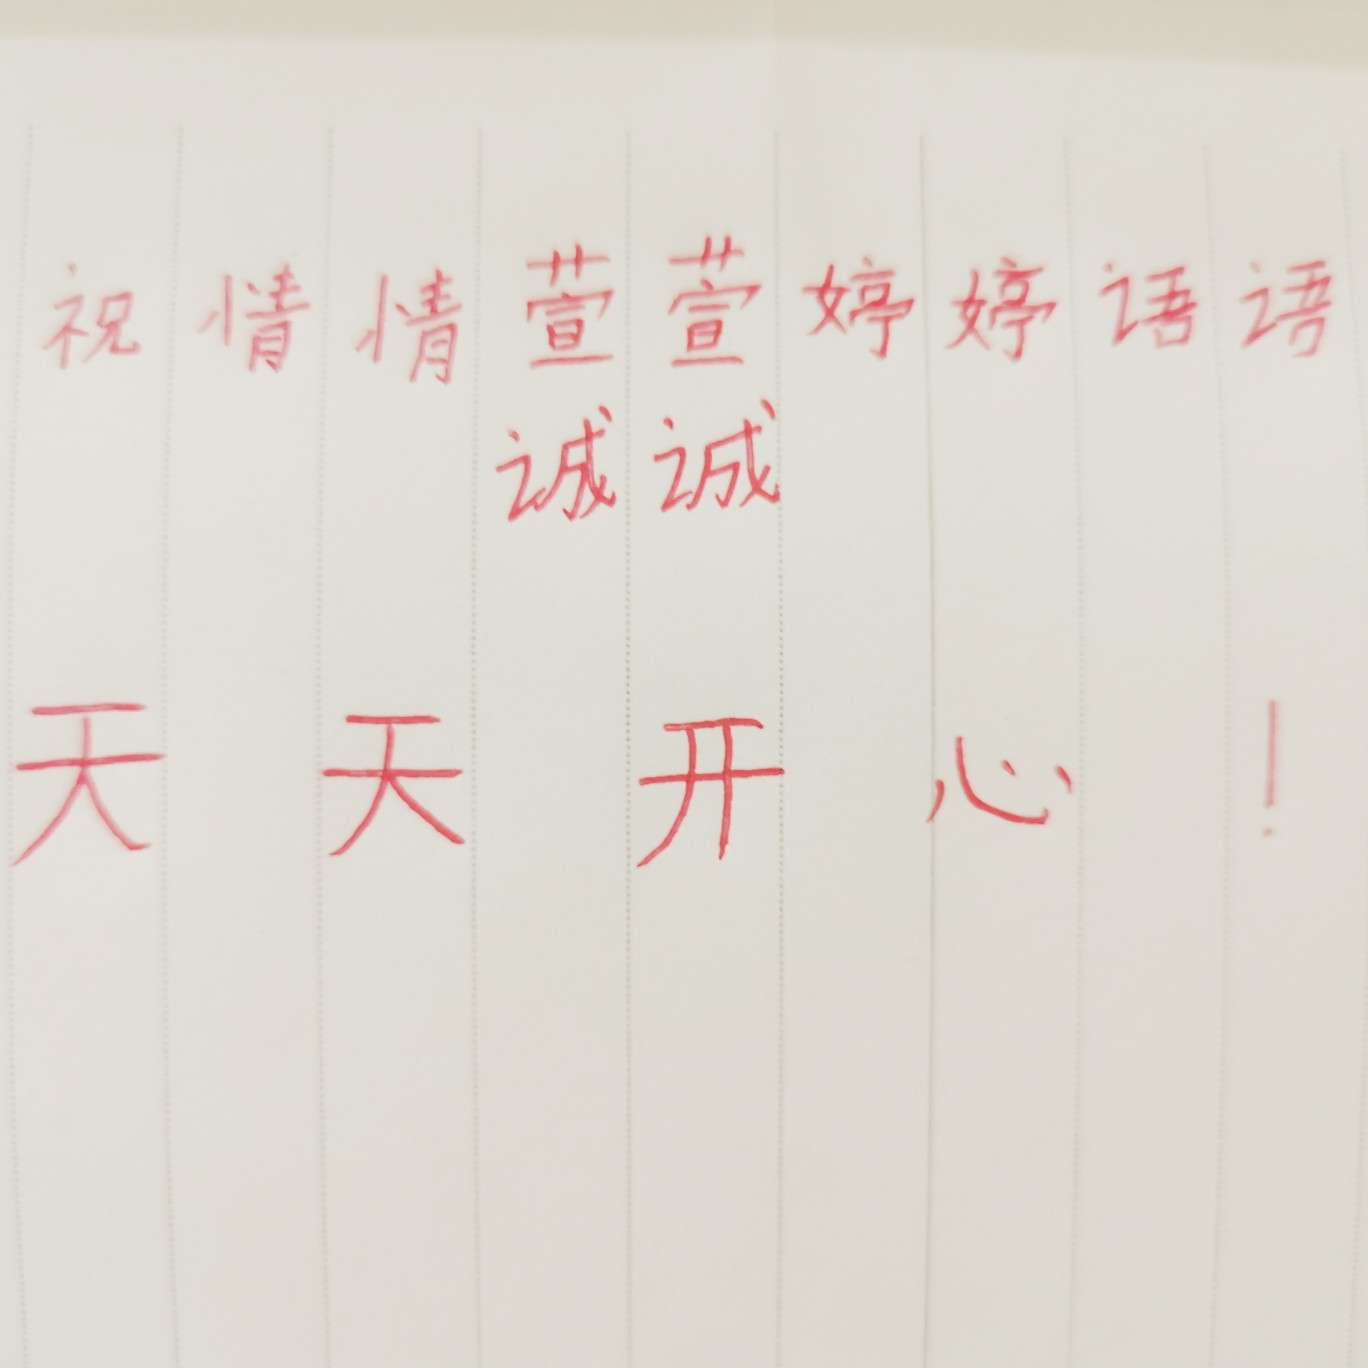 祝情情萱萱婷婷语语
诚诚
天天开心!